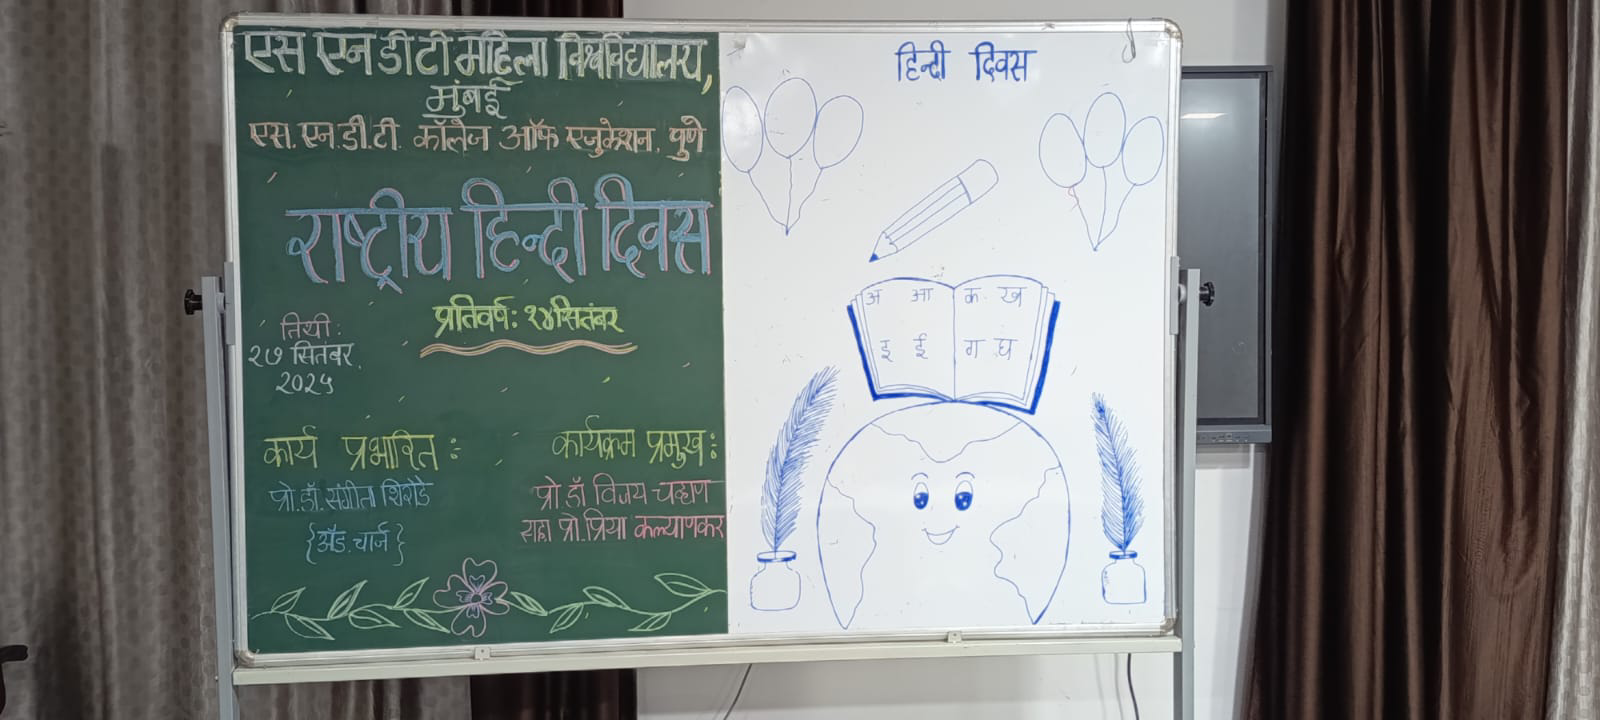 एस एन डी टी महिला विश्वविद्यालय,
मुंबई
एस. एन. डी. टी. कॉलेज ऑफ एजुकेशन, पुणे
राष्ट्रीय हिन्दी दिवस
प्रतिवर्ष: १४ सितंबर
तिथी:
२७ सितंबर,
२०२५
कार्य प्रभारित :
प्रो.डॉ. संगीता शिरोडे
{ॲड. चार्ज}
कार्यक्रम प्रमुख :
प्रो. डॉ विजय चव्हाण
सहा प्रो. प्रिया कल्याणकर
हिन्दी दिवस
अ आ क ख
इ ई ग घ